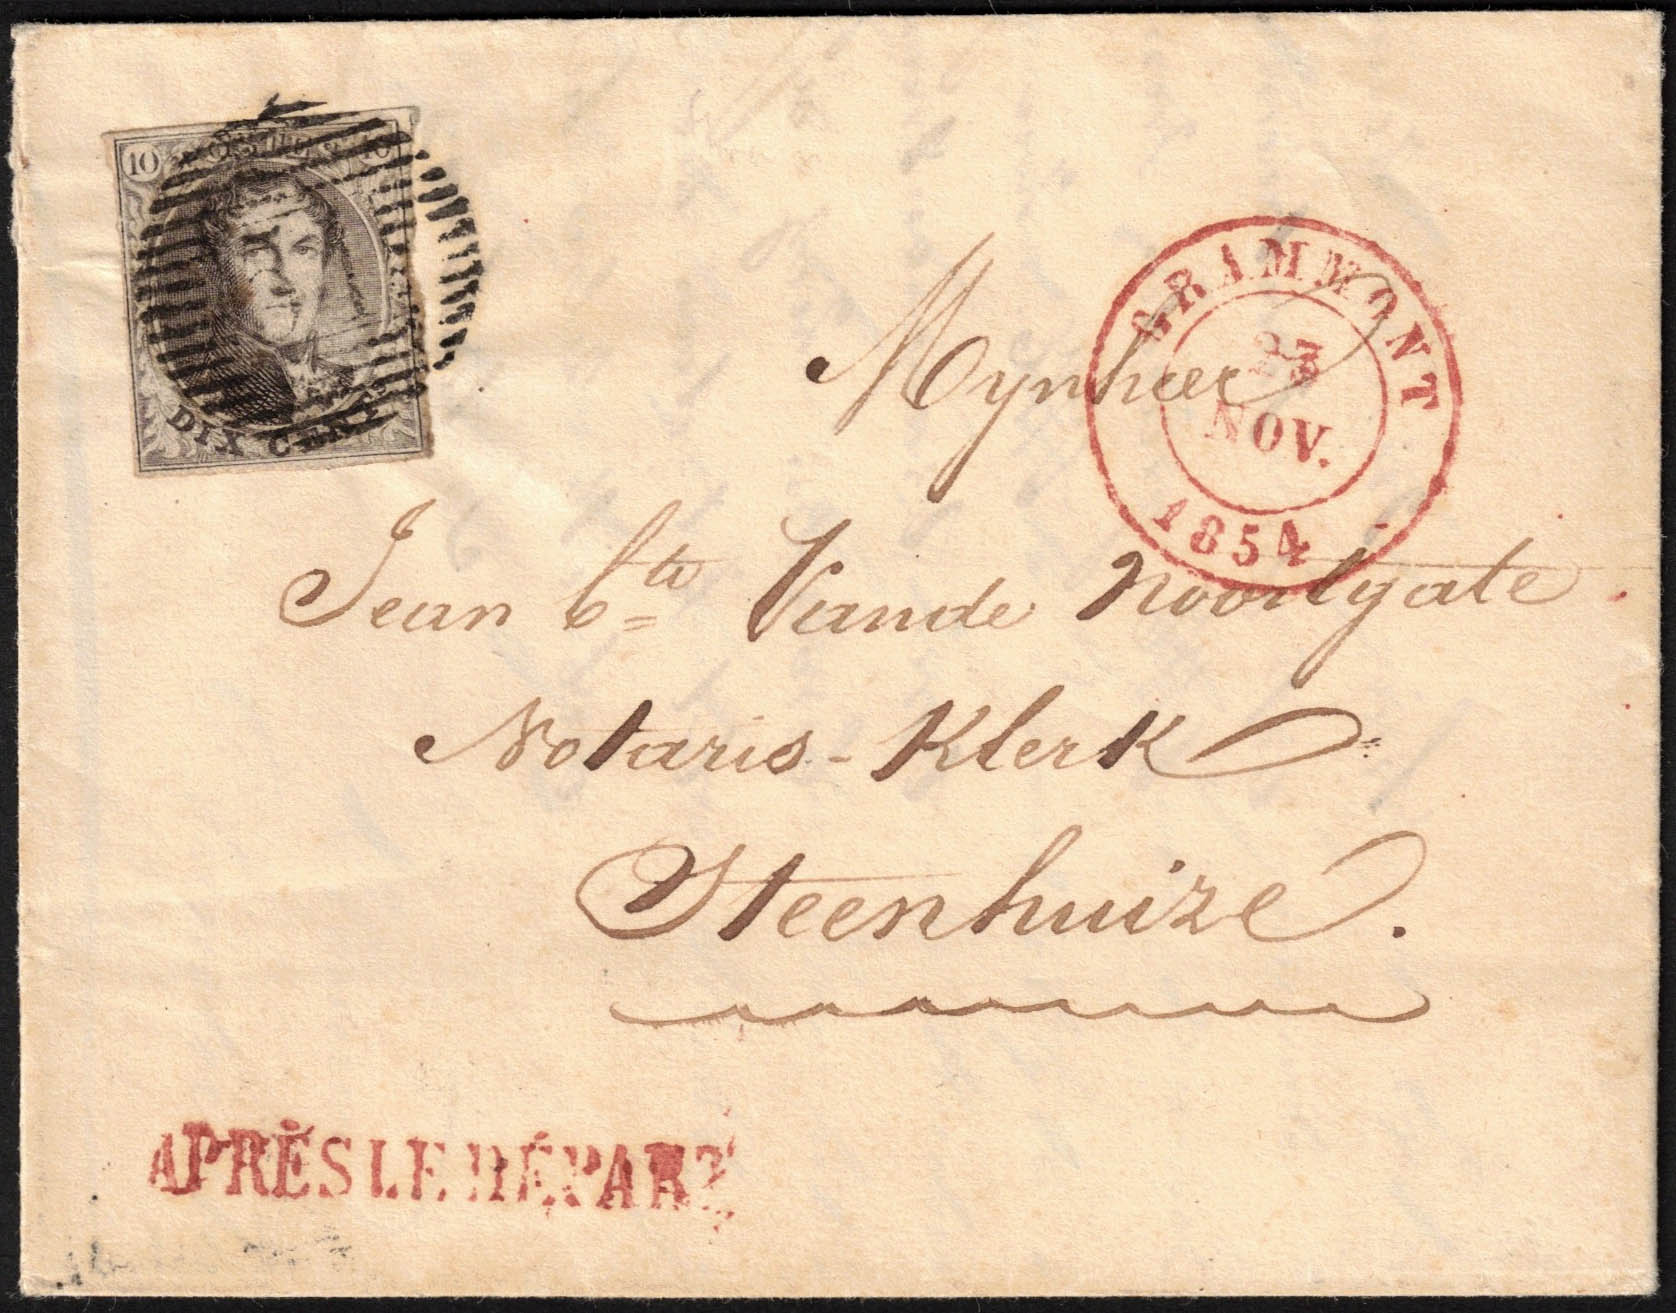 10 POSTES 10
DIX CENT.
GRAMMONT
23
NOV.
1854
Mynheer
Jean Bte Vande Noortgate
Notaris-Klerk
Steenhuize.
APRÈS LE DÉPART